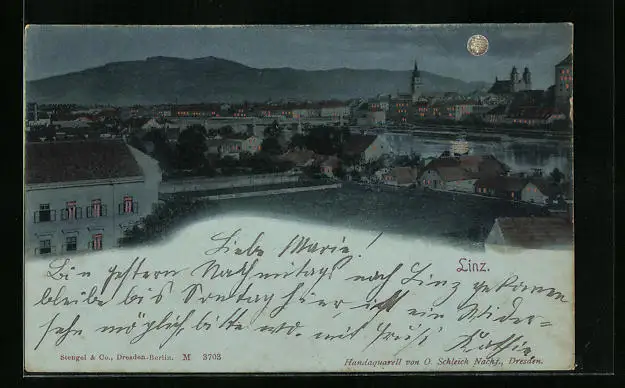 Liebe Marie!
Linz.
Bin gestern Nachmittags nach Linz gekommen
bleibe bis Sonntag hier, ist ein Wider-
sehn möglich, bitte wo. mit Gruß
Stengel & Co., Dresden-Berlin. M 3703
Handaquarell von O. Schleich Nachf., Dresden.